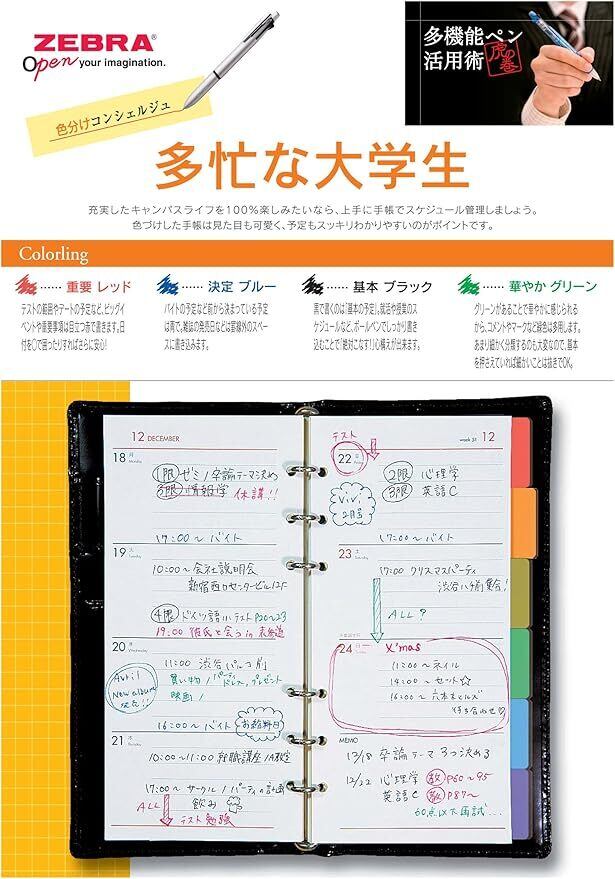 ZEBRA®
Open your imagination.
色分けコンシェルジュ
多機能ペン
活用術
虎の巻
多忙な大学生
充実したキャンパスライフを100%楽しみたいなら、上手に手帳でスケジュール管理しましょう。
色づけした手帳は見た目も可愛く、予定もスッキリわかりやすいのがポイントです。
Colorling
…… 重要 レッド
テストの範囲やデートの予定など、ビッグイ
ベントや重要事項は目立つ赤で書きます。日
付を〇で囲ったりすればさらに安心!
…… 決定 ブルー
バイトの予定など前から決まっている予定
は青で、雑誌の発売日などは罫線外のスペー
スに書き込みます。
…… 基本 ブラック
黒で書くのは「基本の予定」。就活や授業のス
ケジュールなど、ボールペンでしっかり書き
込むことで「絶対こなす!」心構えが出来ます。
…… 華やか グリーン
グリーンがあることで華やかに感じられるか
ら、コメントやマークなど緑色は多用します。
あまり細かく分類するのも大変なので、基本
を押さえていれば細かいことは抜きでOK。
12 DECEMBER
18 月
Monday
1限 ゼミ/卒論テーマ決め
3限 情報学 休講!!
17:00〜バイト
19 火
Tuesday
10:00〜会社説明会
新宿西口センタービル12F
4限 ドイツ語小テスト P20〜23
19:00 彼氏と会う in 表参道
20 水
Wednesday
11:00 渋谷パルコ前
買い物/パーティドレス、プレゼント
映画!
Avril
New album
発売!!
16:00〜バイト お給料日
21 木
Thursday
10:00〜11:00 就職講座 1A教室
17:00〜サークル/パーティの計画
飲み
ALL
テスト勉強
week 51 12
テスト
22 金
Friday
2限 心理学
3限 英語C
ViVi
2月号
17:00〜バイト
23 土
17:00 クリスマスパーティ
渋谷ハチ前集合!
ALL?
24 日
X'mas
11:00〜ネイル
14:00〜セット☆
16:00〜六本木ヒルズ
待ち合わせ♡
MEMO
12/18 卒論テーマ3つ決める
12/22 心理学 教 P60〜95
英語C 教 P87〜
60点以下再試…